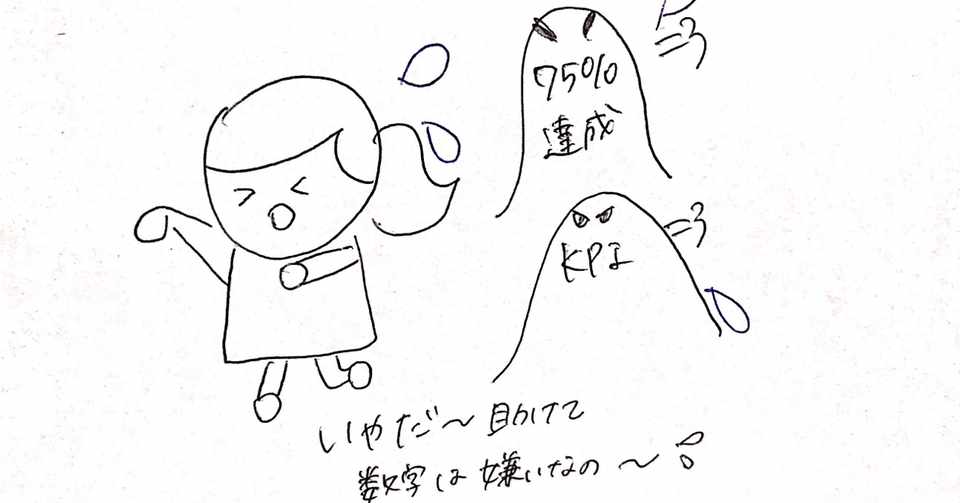 75%
達成
KPI
いやだ〜助けて
数字は嫌いなの〜